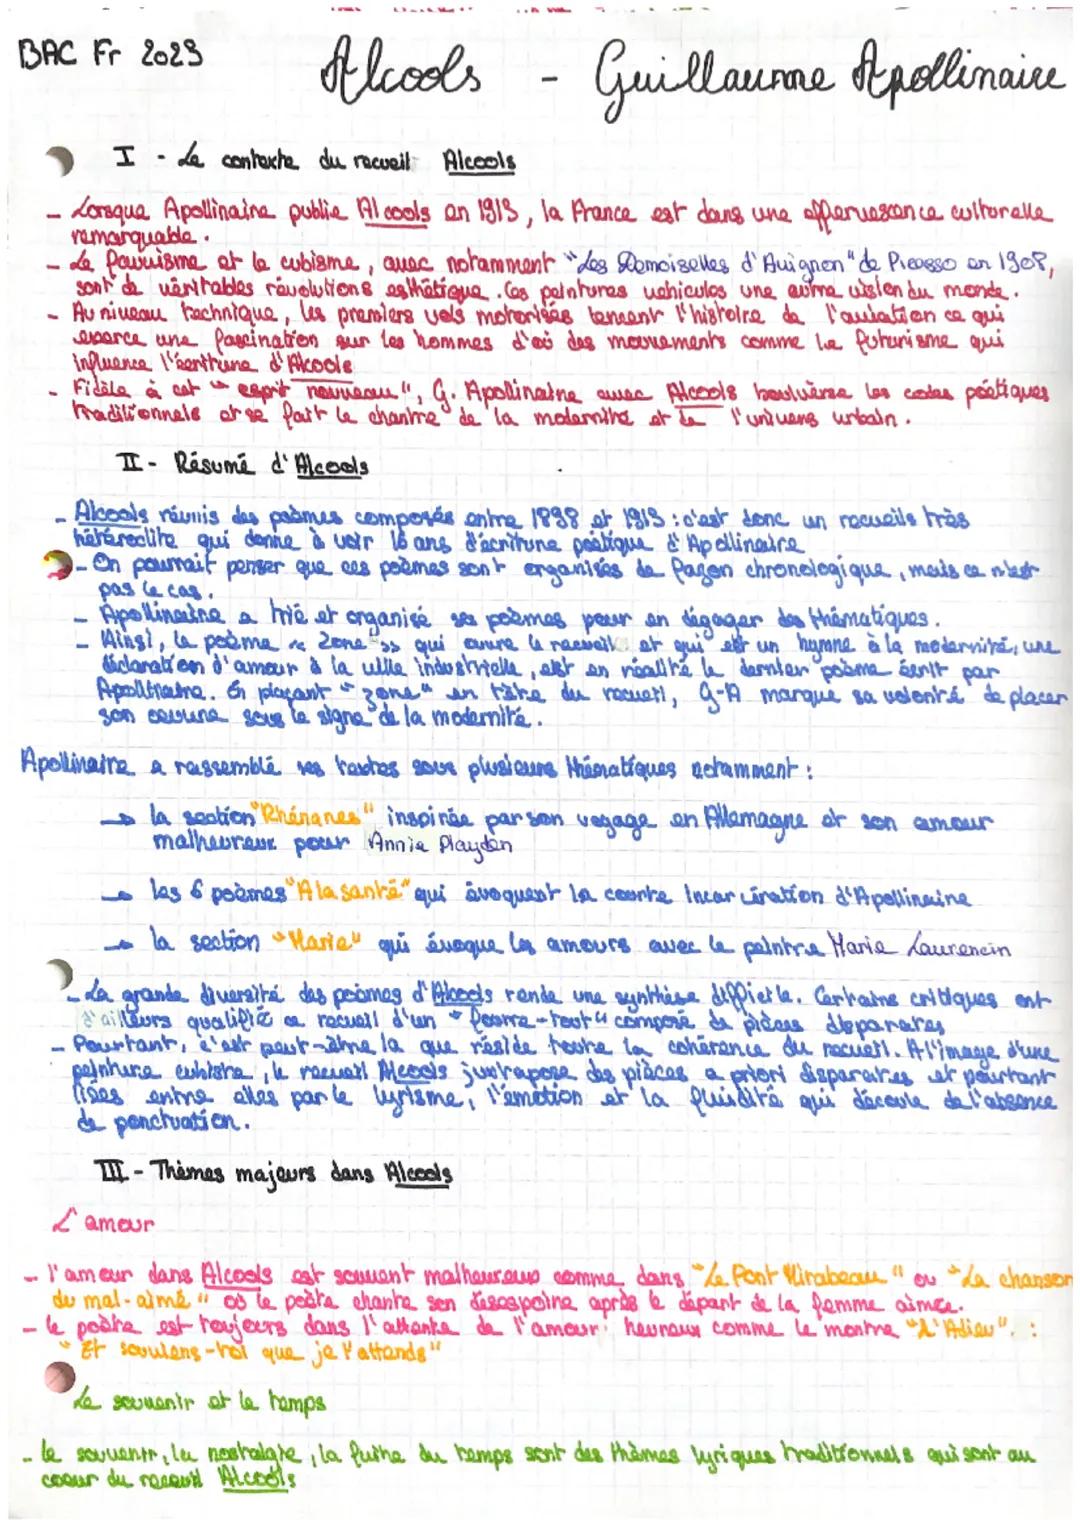 BAC Fr 2023
Alcools - Guillaume Apollinaire
I - Le contexte du recueil Alcools
- Lorsque Apollinaire publie Alcools en 1913, la France est dans une effervescence culturelle
remarquable.
- Le fauvisme et le cubisme, avec notamment "Les Demoiselles d'Avignon" de Picasso en 1908,
sont de véritables révolutions esthétique. Ces peintures véhicules une autre vision du monde.
- Au niveau technique, les premiers vols motorisés tement l'histoire de l'aviation ce qui
exerce une fascination sur les hommes d'où des mouvements comme le futurisme qui
influence l'écriture d'Alcools
- Fidèle à cet "esprit nouveau", G. Apollinaire avec Alcools boulverse les codes poétiques
traditionnels et se fait le chantre de la modernité et de l'univers urbain.
II - Résumé d'Alcools
- Alcools réunis des poèmes composés entre 1898 et 1913 : c'est donc un recueils très
hétéroclite qui donne à voir 15 ans d'écriture poétique d'Apollinaire
- On pourrait penser que ces poèmes sont organisés de façon chronologique, mais ce n'est
pas le cas.
- Apollinaire a trié et organisé ses poèmes pour en dégager des thématiques.
- Ainsi, le poème « Zone » qui ouvre le recueil et qui est un hymne à la modernité, une
déclaration d'amour à la ville industrielle, est en réalité le dernier poème écrit par
Apollinaire. En plaçant "zone" en tête du recueil, G-A marque sa volonté de placer
son oeuvre sous le signe de la modernité.
Apollinaire a rassemblé ses textes sous plusieurs thématiques notamment :
→ la section "Rhénanes" inspirée par son voyage en Allemagne et son amour
malheureux pour Annie Playden
→ les 6 poèmes "A la santé" qui évoquent la courte incarcération d'Apollinaire
→ la section "Marie" qui évoque les amours avec le peintre Marie Laurencin
- La grande diversité des poèmes d'Alcools rende une synthèse difficile. Certains critiques ont
d'ailleurs qualifié ce recueil d'un "fourre-tout" composé de pièces disparates
- Pourtant, c'est peut-être la que réside toute la cohérence du recueil. A l'image d'une
peinture cubiste, le recueil Alcools juxtapose des pièces a priori disparates et pourtant
liées entre elles par le lyrisme, l'émotion et la fluidité qui découle de l'absence
de ponctuation.
III - Thèmes majeurs dans Alcools
L'amour
- l'amour dans Alcools est souvent malheureux comme dans "Le Pont Mirabeau" ou "La chanson
du mal-aimé" où le poète chante son désespoire après le départ de la femme aimée.
- le poète est toujours dans l'attente de l'amour heureux comme le montre "L'Adieu" :
"Et souviens-toi que je t'attends"
Le souvenir et le temps
- le souvenir, la nostalgie, la fuite du temps sont des thèmes lyriques traditionnels qui sont au
coeur du recueil Alcools